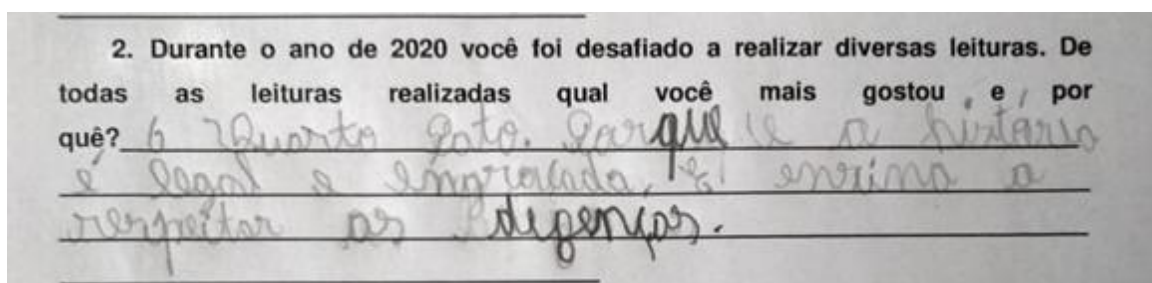 2. Durante o ano de 2020 você foi desafiado a realizar diversas leituras. De
todas as leituras realizadas qual você mais gostou e por
quê? O Quarto Gato. Porque a história
é legal e engraçada, e ensina a
respeitar as difenças.